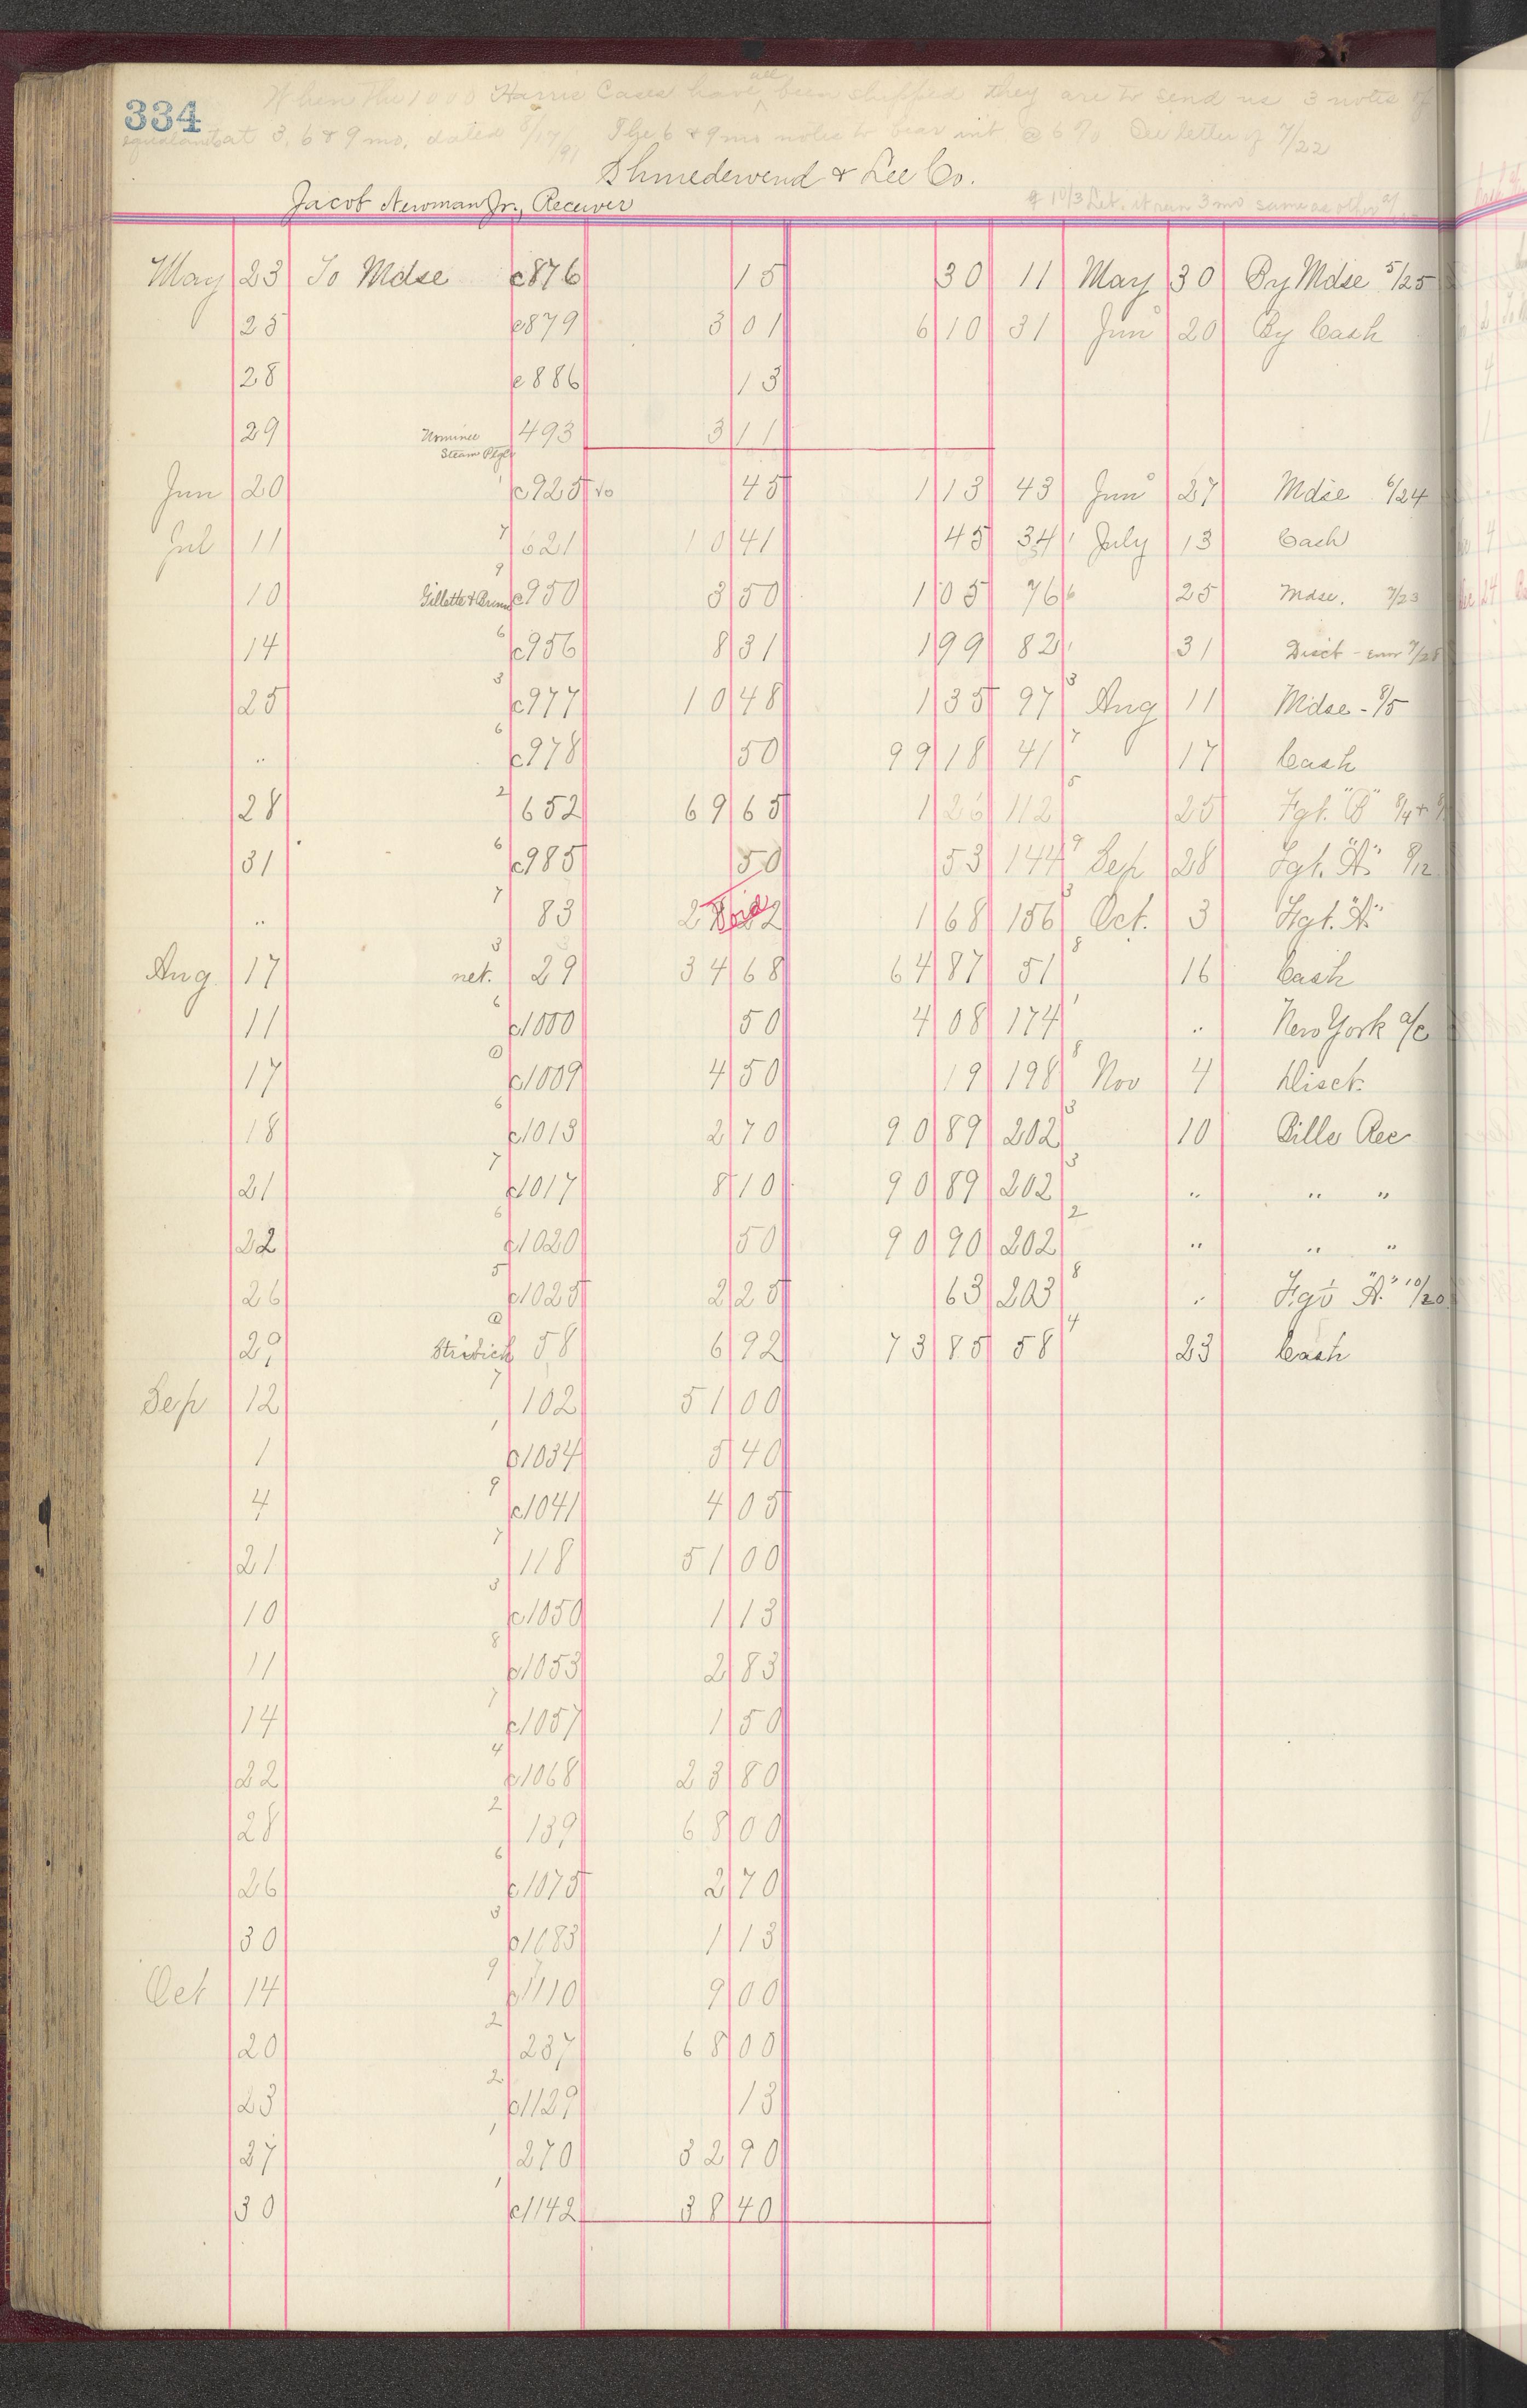 334
When the 1000 Harris Cases have all been shipped they are to send us 3 notes of
equal amts at 3, 6 & 9 mo, dated 8/17/91 The 6 & 9 mo notes to bear int @ 6%. See letter of 7/22
Shniedewend & Lee Co.
Jacob Newman Jr., Receiver
May 23 To Mdse c876 15 30 11 May 30 By Mdse 5/25
25 c879 3 01 6 10 31 Jun 20 By Cash
28 c886 13
29 Nominee Steam Ptg Co 493 3 11
Jun 20 c925 45 1 13 43 Jun 27 Mdse 6/24
Jul 11 7 621 10 41 45 34 1 July 13 Cash
10 Gillette & 9 c950 3 50 1 05 76 6 25 Mdse. 7/23
14 6 c956 8 31 1 99 82 1 31 Disct - 7/28
25 3 c977 10 48 1 35 97 3 Aug 11 Mdse - 8/5
.. 6 c978 50 99 18 41 7 17 Cash
28 2 652 69 65 1 26 112 5 25 Fgt. "B" 8/4
31 6 c985 50 53 144 9 Sep 28 Fgt. "A" 8/12
.. 7 83 Void 1 68 156 3 Oct. 3 Fgt. "A"
Aug 17 net. 3 29 34 68 64 87 51 8 16 Cash
11 6 c1000 50 4 08 174 1 .. New York a/c
17 0 c1009 4 50 19 198 8 Nov 4 Disct.
18 6 c1013 2 70 90 89 202 3 10 Bills Rec
21 7 c1017 8 10 90 89 202 3 .. .. "
22 6 c1020 50 90 90 202 2 .. .. "
26 5 c1025 2 25 63 203 8 .. Fgt "A" 10/20
29 0 58 6 92 73 85 58 4 23 Cash
Sep 12 7 102 51 00
1 1 c1034 5 40
4 9 c1041 4 05
21 7 118 51 00
10 3 c1050 1 13
11 8 c1053 2 83
14 7 c1057 1 50
22 4 c1068 23 80
28 2 139 68 00
26 6 c1075 2 70
30 3 c1083 1 13
Oct 14 9 c1110 9 00
20 2 237 68 00
23 2 c1129 13
27 1 270 32 90
30 1 c1142 38 40